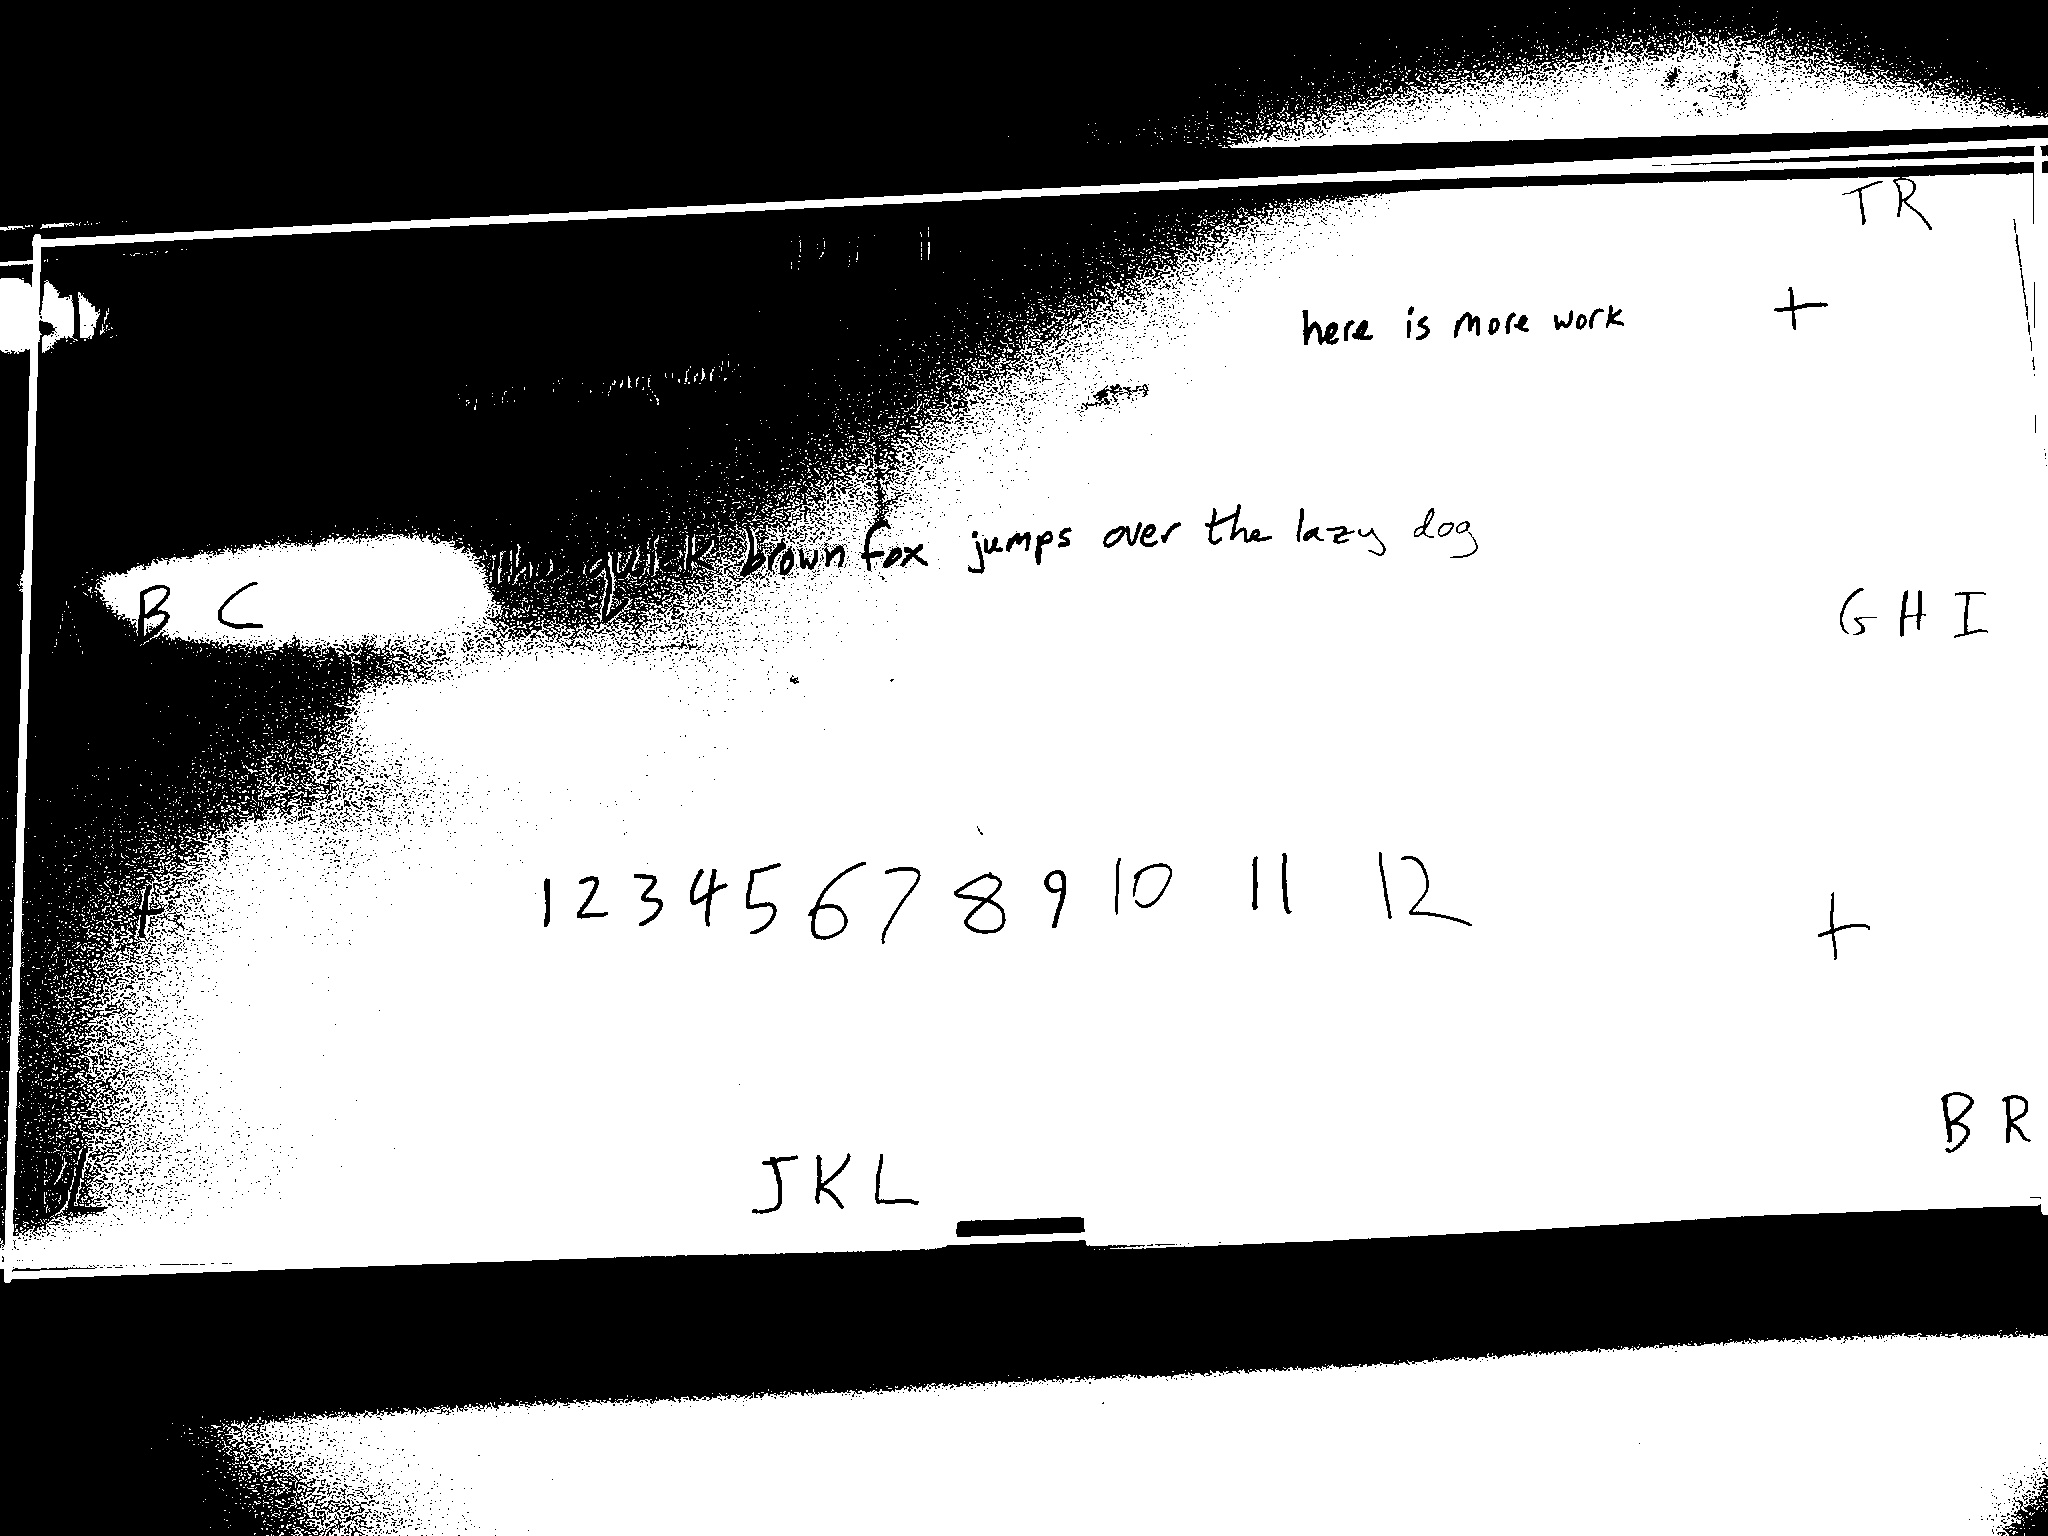 TR
here is more work +
The quick brown fox jumps over the lazy dog
A B C
G H I
+ 1 2 3 4 5 6 7 8 9 10 11 12 +
BR
BL
JKL